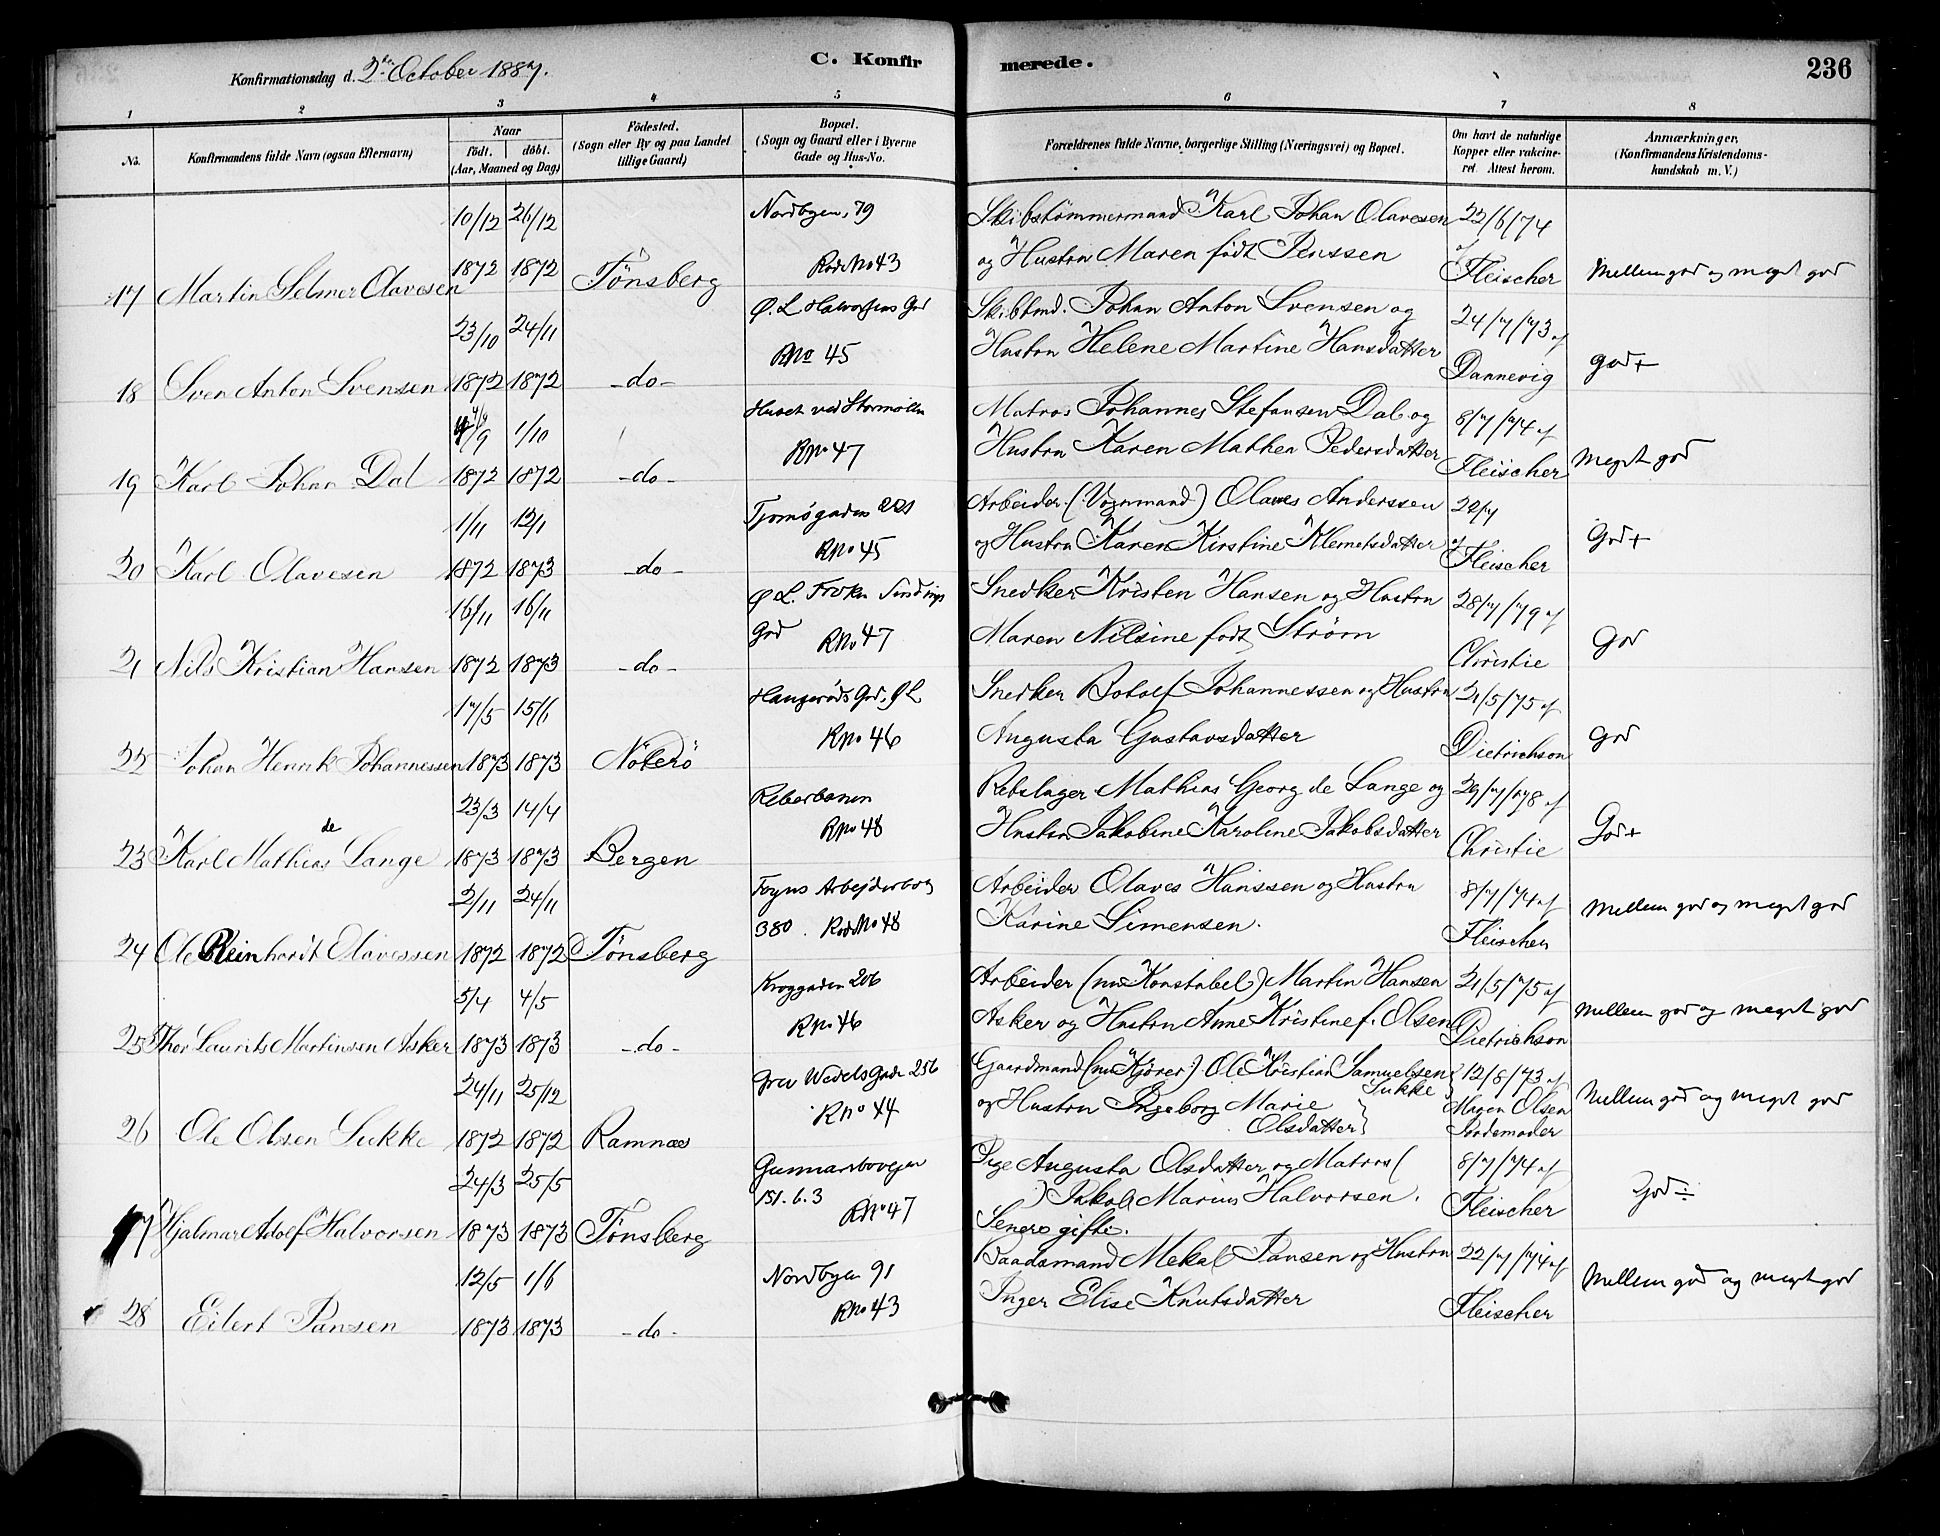 Konfirmationsdag d. 2den October 1887.
C. Konfirmerede.
236
1 2 3 4 5 6 7 8
No.
Konfirmandens fulde Navn (ogsaa Efternavn)
Naar
födt. döbt.
(Aar, Maaned og Dag)
Födested.
(Sogn eller By og paa Landet
tillige Gaard)
Bopæl.
(Sogn og Gaard eller i Byerne
Gade og Hus-No.
Forældrenes fulde Navne, borgerlige Stilling (Næringsvei) og Bopæl.
Om havt de naturlige
Kopper eller vakcine-
ret. Attest herom.
Anmærkninger,
(Konfirmandens Kristendoms-
kundskab m. V.)
10/12 26/12 Nordbyen, 79 Skibstømmermand Karl Johan Olavesen 22/6/74
1872 1872 Rode No 43 og Hustru Maren født Jenssen af
17 Martin Selmer Olavesen Tönsberg Fleischer Mellem god og meget god
23/10 24/11 Ø. L. Halvorsens Grd Skibtmd. Johan Anton Svensen og 24/7/73 af
RNo 45 Hustru Helene Martine Hansdatter
18 Sven Anton Svensen 1872 1872 -do- Dannevig god+
4/9 1/10 Huset ved Stormöllen Matros Johannes Stefansen Dal og 8/7/74 af
RNo 47 Hustru Karen Mathea Pedersdatter
19 Karl Johan Dal 1872 1872 -do- Fleischer Meget god
1/11 12/1 Tjomögaden 221 Arbeider (Vognmand) Olaves Anderssen 22/7
RNo 45 og Hustru Karen Kirstine Klemetsdatter af
20 Karl Olavesen 1872 1873 -do- Fleischer God+
16/11 16/11 Ø L. Frøken Sindings Snedker Kristen Hansen og Hustru 28/7/79 af
Grd RNo 47 Maren Nilsine født Strøm
21 Nils Kristian Hansen 1872 1873 -do- Christie God
17/5 15/6 Haugerøds Grd. Ø L Snedker Botolf Johannessen og Hustru 21/5/75 af
RNo 46 Augusta Gustavsdatter
22 Johan Henrik Johannessen 1873 1873 Nöterö Dietrichson God
23/3 14/4 Reberbanen Rebslager Mathias Georg de Lange og 29/7/78 af
RNo 48 Hustru Jakobine Karoline Jakobsdatter
23 Karl Mathias de Lange 1873 1873 Bergen Christie God+
2/11 24/11 Foyns Arbejderbolig Arbeider Olaves Hanssen og Hustru 8/7/74 af
380. Rode No 48 Karine Simensen.
24 Ole Reinhardt Olavessen 1872 1872 Tönsberg Fleischer Mellem god og meget god
5/4 4/5 Kroggaden 206 Arbeider (nu Konstabel) Martin Hansen 21/5/75 af
RNo 46 Asker og Hustru Anne Kristine f. Olsen
25 Thor Laurits Martinsen Asker 1873 1873 -do- Dietrichson Mellem god og meget god
24/11 25/12 Grev Wedels Gade 256 Gaardmand (nu Kjører) Ole Kristian Samuelsen 12/8/73 af
RNo 44 og Hustru Ingeborg Marie Sukke Maren Olsen
26 Ole Olsen Sukke 1872 1872 Ramnæs Olsdatter Jordemoder Mellem god og meget god
24/3 25/5 Gunnarsbovejen Pige Augusta Olsdatter og Matros ( 8/7/74 af
151.6.3 RNo 47 ) Jakob Marius Halvorsen.
27 Hjalmar Adolf Halvorsen 1873 1873 Tönsberg Senere gifte. Fleischer God ÷
12/5 1/6 Nordbyen 91 Baadsmand Mekal Pansen og Hustru 22/7/74 af
RNo 43 Inger Elise Knutsdatter
28 Eilert Pansen 1873 1873 -do- Fleischer Mellem god og meget god